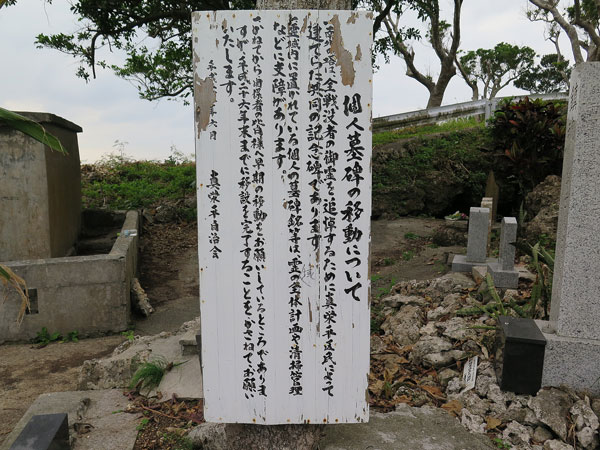 個人墓碑の移動について
塔は、全戦没者の御霊を追悼するために真栄平区民によって
建てられた共同の記念碑であります。
霊域内に置かれている個人の墓碑銘等は、霊の全体計画や清掃管理
などに支障があります。
かねてから関係者の皆様へ早期の移動をお願いしているところでありま
すが、平成二六年末までに移設を完了することをかさねてお願い
いたします。
平成二 年六月
真栄平自治会